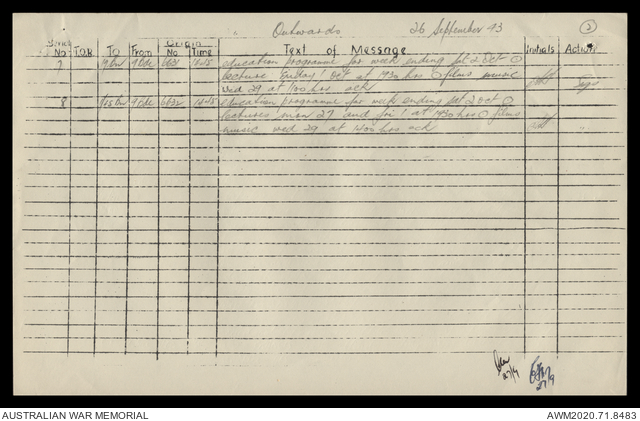 Outwards 26 September 43 2
Serial No. T.O.R. To From Origin No Time Text of Message Initials Action
7 1845 education programme for week ending sat 2 Oct O
lecture friday 1 Oct at 1930 hrs O films music
wed 29 at 1400 hrs ack
8 6632 1845 education programme for week ending sat 2 oct O
lectures mon 27 and fri 1 at 1930 hrs O films
music wed 29 at 1400 hrs ack
27/9 27/9
AUSTRALIAN WAR MEMORIAL AWM2020.71.8483